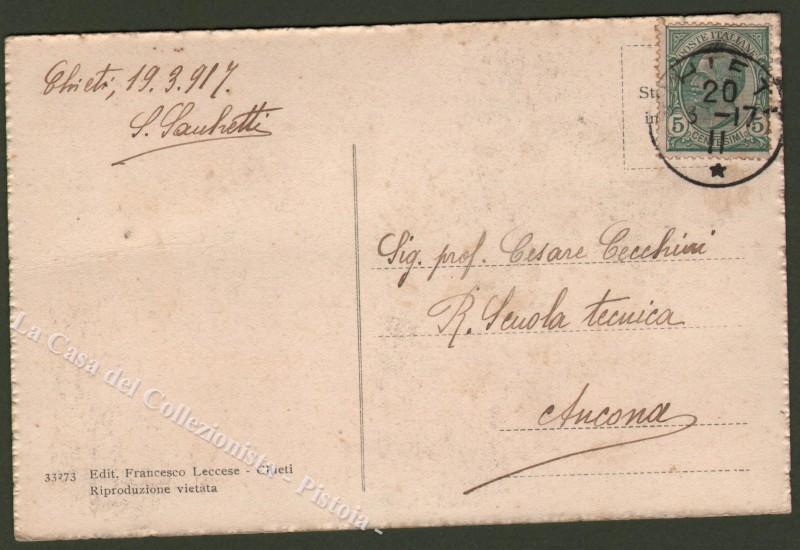 Chieti, 19.3.917.
S. Sanchetti
POSTE ITALIANE
5 CENTESIMI 5
20
3 - 17
11
St
in
Sig. prof. Cesare Cecchini
R. Scuola tecnica
Ancona
33273 Edit. Francesco Leccese - Chieti
Riproduzione vietata
La Casa del Collezionista - Pistoia -